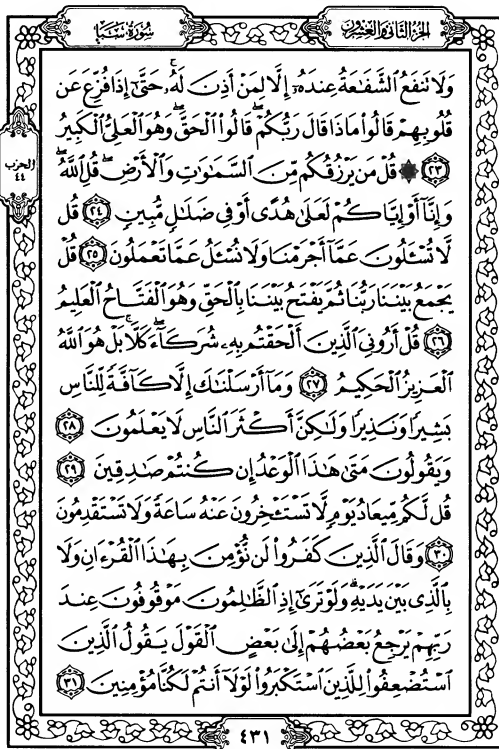 الجزء الثاني والعشرون
سورة سبإ
وَلَا تَنفَعُ ٱلشَّفَـٰعَةُ عِندَهُۥٓ إِلَّا لِمَنْ أَذِنَ لَهُۥ ۚ حَتَّىٰٓ إِذَا فُزِّعَ عَن
قُلُوبِهِمْ قَالُوا۟ مَاذَا قَالَ رَبُّكُمْ ۖ قَالُوا۟ ٱلْحَقَّ ۖ وَهُوَ ٱلْعَلِىُّ ٱلْكَبِيرُ
٢٣ ۞ قُلْ مَن يَرْزُقُكُم مِّنَ ٱلسَّمَـٰوَٰتِ وَٱلْأَرْضِ ۖ قُلِ ٱللَّهُ ۖ
وَإِنَّآ أَوْ إِيَّاكُمْ لَعَلَىٰ هُدًى أَوْ فِى ضَلَـٰلٍ مُّبِينٍ ٢٤ قُل
لَّا تُسْـَٔلُونَ عَمَّآ أَجْرَمْنَا وَلَا نُسْـَٔلُ عَمَّا تَعْمَلُونَ ٢٥ قُلْ
يَجْمَعُ بَيْنَنَا رَبُّنَا ثُمَّ يَفْتَحُ بَيْنَنَا بِٱلْحَقِّ وَهُوَ ٱلْفَتَّاحُ ٱلْعَلِيمُ
٢٦ قُلْ أَرُونِىَ ٱلَّذِينَ أَلْحَقْتُم بِهِۦ شُرَكَآءَ ۖ كَلَّا ۚ بَلْ هُوَ ٱللَّهُ
ٱلْعَزِيزُ ٱلْحَكِيمُ ٢٧ وَمَآ أَرْسَلْنَـٰكَ إِلَّا كَآفَّةً لِّلنَّاسِ
بَشِيرًا وَنَذِيرًا وَلَـٰكِنَّ أَكْثَرَ ٱلنَّاسِ لَا يَعْلَمُونَ ٢٨
وَيَقُولُونَ مَتَىٰ هَـٰذَا ٱلْوَعْدُ إِن كُنتُمْ صَـٰدِقِينَ ٢٩
قُل لَّكُم مِّيعَادُ يَوْمٍ لَّا تَسْتَـْٔخِرُونَ عَنْهُ سَاعَةً وَلَا تَسْتَقْدِمُونَ
٣٠ وَقَالَ ٱلَّذِينَ كَفَرُوا۟ لَن نُّؤْمِنَ بِهَـٰذَا ٱلْقُرْءَانِ وَلَا
بِٱلَّذِى بَيْنَ يَدَيْهِ ۗ وَلَوْ تَرَىٰٓ إِذِ ٱلظَّـٰلِمُونَ مَوْقُوفُونَ عِندَ
رَبِّهِمْ يَرْجِعُ بَعْضُهُمْ إِلَىٰ بَعْضٍ ٱلْقَوْلَ يَقُولُ ٱلَّذِينَ
ٱسْتُضْعِفُوا۟ لِلَّذِينَ ٱسْتَكْبَرُوا۟ لَوْلَآ أَنتُمْ لَكُنَّا مُؤْمِنِينَ ٣١
الحزب
٤٤
٤٣١